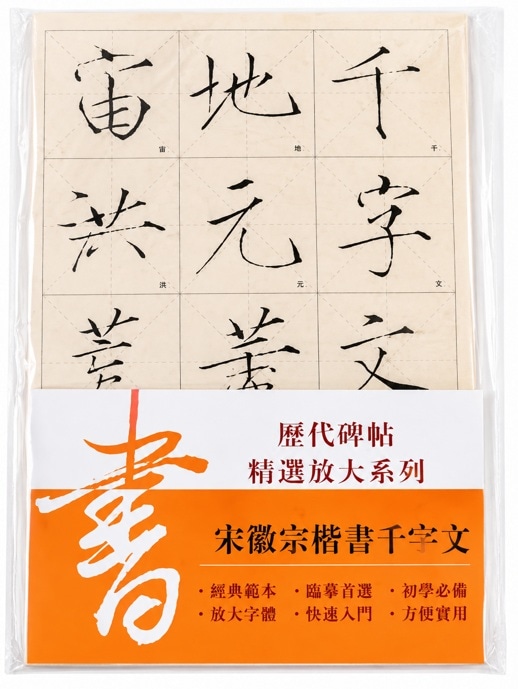 千字文
千
文
地元
地
元
宙洪
宙
洪
書
歷代碑帖
精選放大系列
宋徽宗楷書千字文
·經典範本 ·臨摹首選 ·初學必備
·放大字體 ·快速入門 ·方便實用